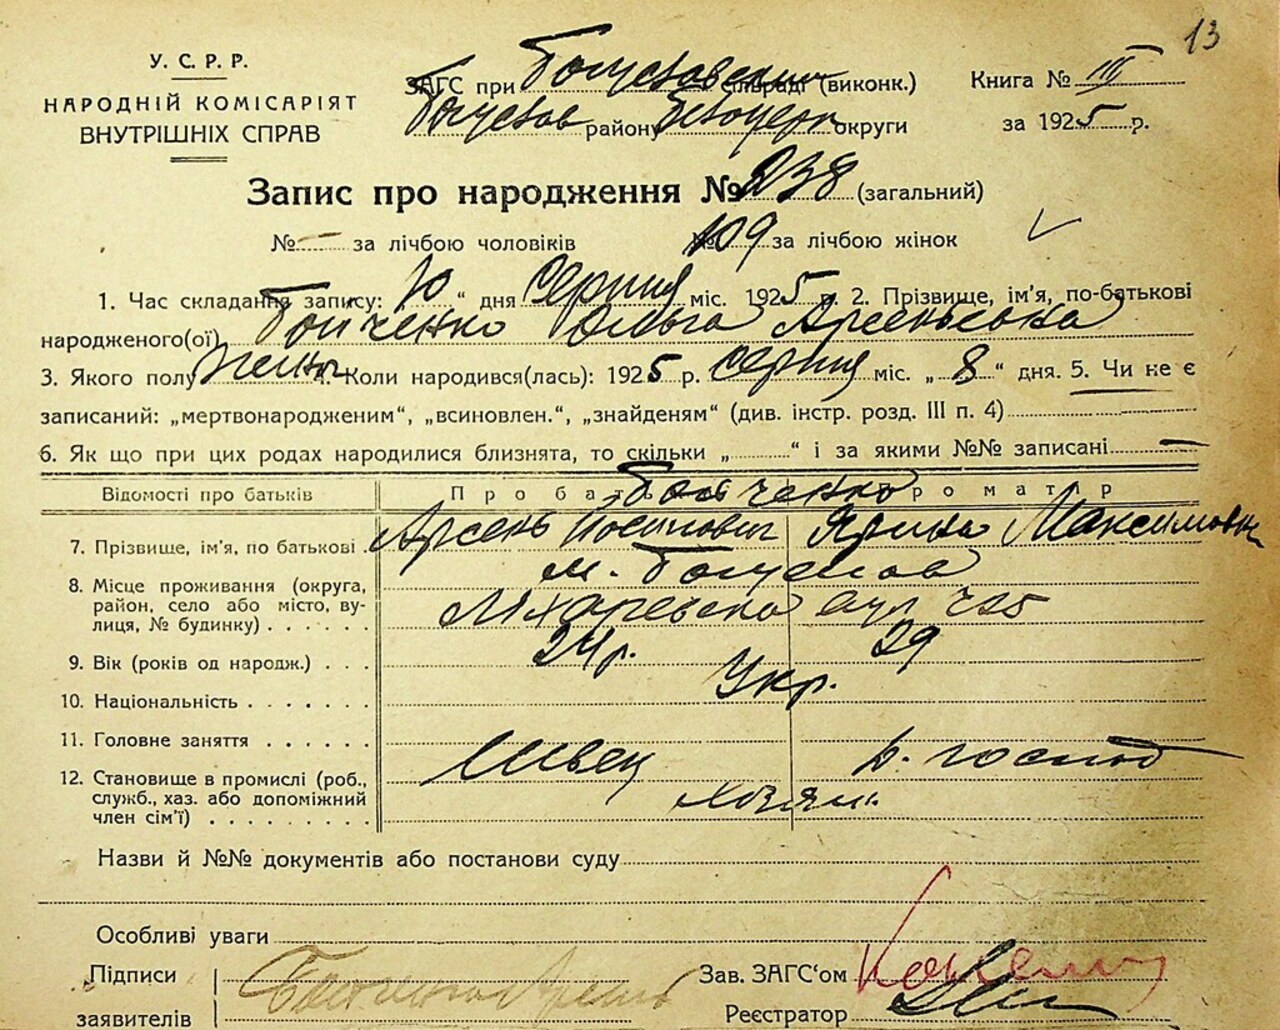 13
У.С.Р.Р.
НАРОДНІЙ КОМІСАРІЯТ
ВНУТРІШНІХ СПРАВ
ЗАГС при сільраді (виконк.) Книга № III
Богуслав району Білоцерк округи за 1925 р.
Запис про народження № 238 (загальний)
№ — за лічбою чоловіків № 109 за лічбою жінок
1. Час складання запису: 10 " дня серпня міс. 1925 р. 2. Прізвище, ім'я, по-батькові
народженого(ої) Бойченко Ольга Арсеньевська
3. Якого полу жіноч 4. Коли народився(лась): 1925 р. серпня міс. „ 8 " дня. 5. Чи не є
записаний: „мертвонародженим", „всиновлен.", „знайденям" (див. інстр. розд. III п. 4)
6. Як що при цих родах народилися близнята, то скільки „ " і за якими №№ записані —
Відомості про батьків Про батька Про матір
Бойченко
7. Прізвище, ім'я, по батькові Арсень Йосипович Ярина Максимовна
8. Місце проживання (округа, м. Богуслав
район, село або місто, ву-
лиця, № будинку) вул 425
9. Вік (років од народж.) 24 р. 29
10. Національність Укр.
11. Головне заняття Швец д. господ
12. Становище в промислі (роб.,
служб., хаз. або допоміжний хозяин.
член сім'ї)
Назви й №№ документів або постанови суду
Особливі уваги
Підписи
заявителів Бойченко Арень
Зав. ЗАГС'ом
Реєстратор